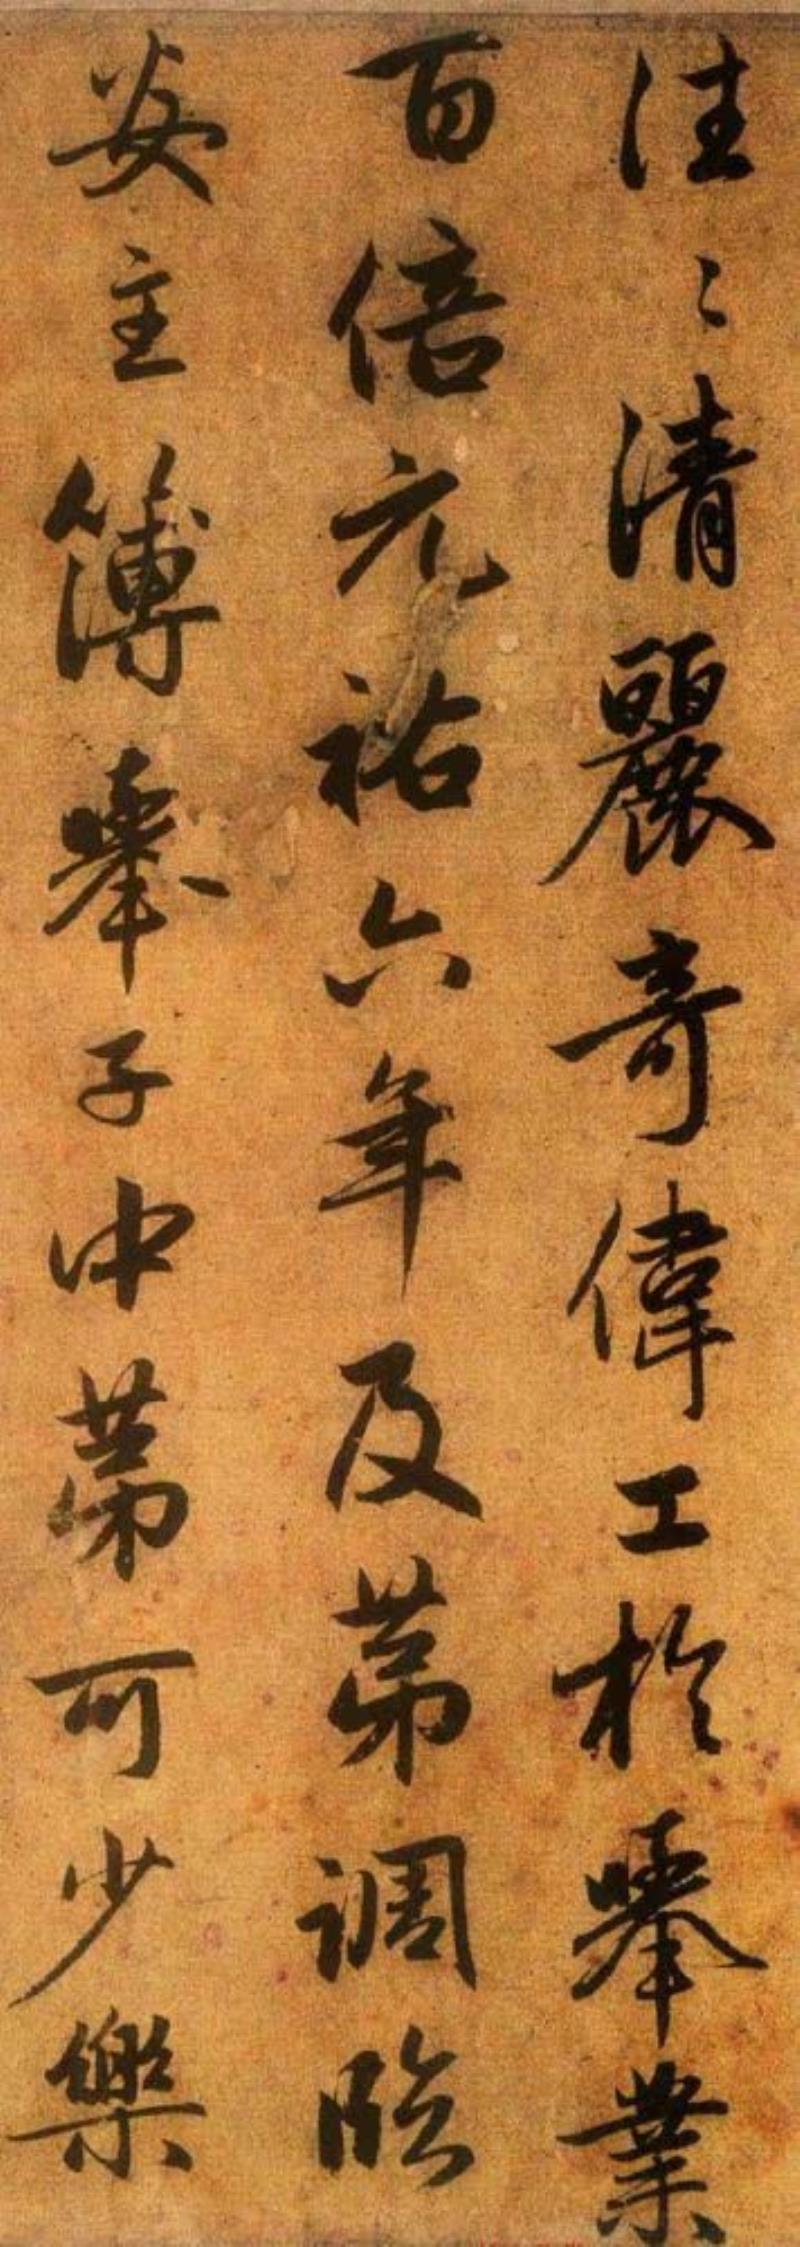 往〻清麗奇偉工於舉業
百倍元祐六年及苐調臨
安主簿舉子中苐可少樂